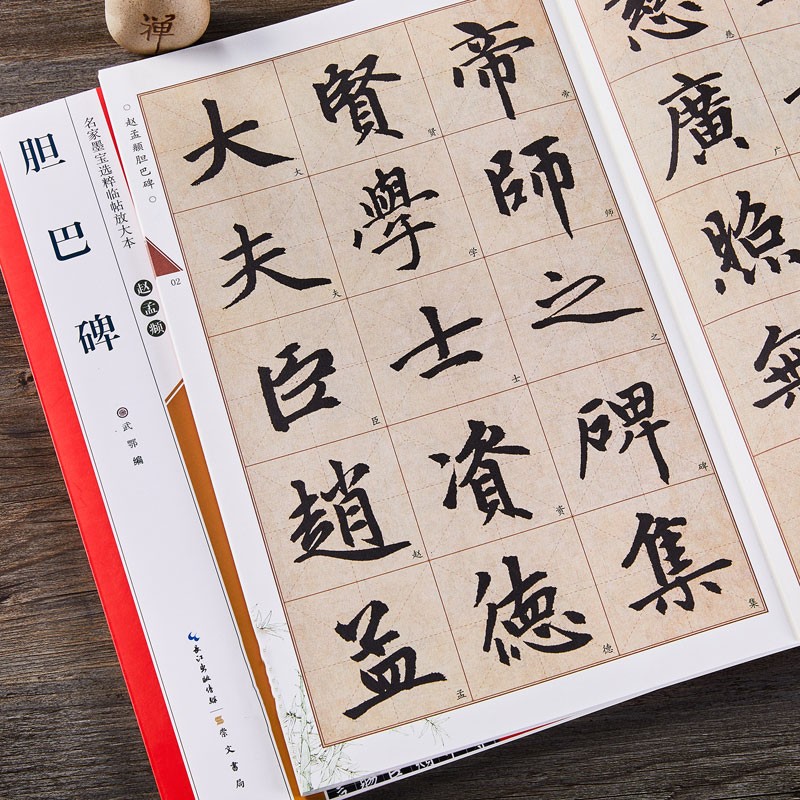 禅
胆巴碑
名家墨宝选粹临帖放大本
赵孟頫
武鄂编
长江出版传媒
崇文书局
○赵孟頫胆巴碑○
02
慈廣照無
慈广
帝師之碑集
帝师之碑集
賢學士資德
贤学士资德
大夫臣趙孟
大夫臣赵孟